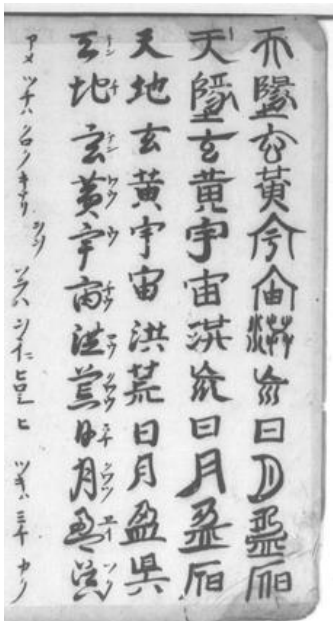 天墬玄黃宇宙㳟㡃日月盈𣅔
天墬玄黃宇宙洪㡃日月盈𣅔
天地玄黄宇宙洪荒日月盈昃
天地玄黄宇宙洪荒日月盈昃
アメ ツチハ クロク キナリ ソラハ ヒロシ ヒ ツキハ ミチ カク